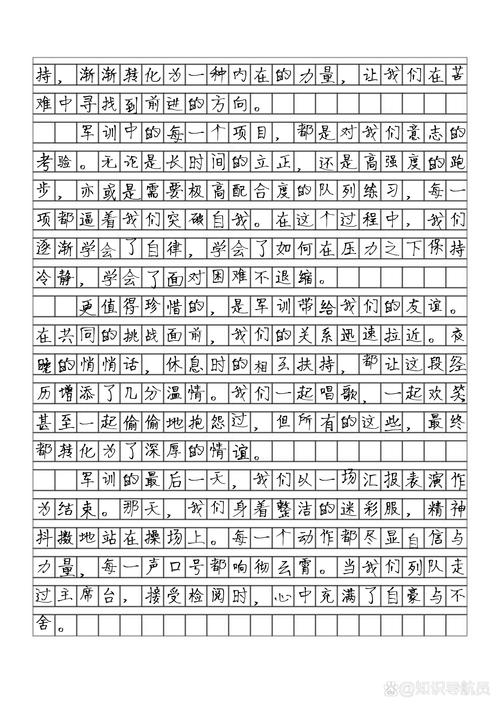 持，渐渐转化为一种内在的力量，让我们在苦
难中寻找到前进的方向。
军训中的每一个项目，都是对我们意志的
考验。无论是长时间的立正，还是高强度的跑
步，亦或是需要极高配合度的队列练习，每一
项都逼着我们突破自我。在这个过程中，我们
逐渐学会了自律，学会了如何在压力之下保持
冷静，学会了面对困难不退缩。
更值得珍惜的，是军训带给我们的友谊。
在共同的挑战面前，我们的关系迅速拉近。夜
晚的悄悄话，休息时的相互扶持，都让这段经
历增添了几分温情。我们一起唱歌，一起欢笑
甚至一起偷偷地抱怨过，但所有的这些，最终
都转化为了深厚的情谊。
军训的最后一天，我们以一场汇报表演作
为结束。那天，我们身着整洁的迷彩服，精神
抖擞地站在操场上。每一个动作都尽显自信与
力量，每一声口号都响彻云霄。当我们列队走
过主席台，接受检阅时，心中充满了自豪与不
舍。
@知识导航员